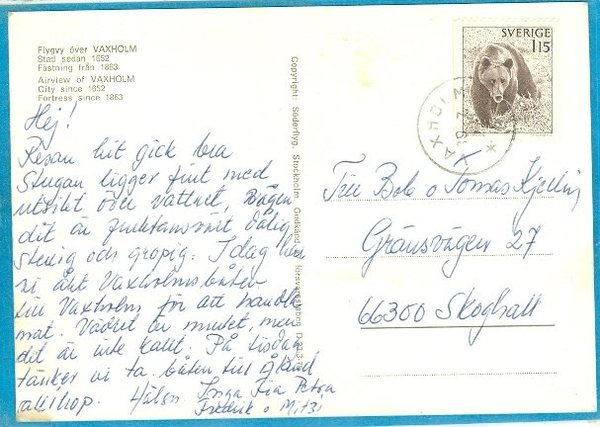 Flygvy över VAXHOLM
Stad sedan 1652
Fästning från 1863
Airview of VAXHOLM
City since 1652
Fortress since 1863
Hej!
Resan hit gick bra
Stugan ligger fint med
utsikt över vattnet, Vägen
dit är fruktansvärt dålig
stenig och gropig. Idag har
vi åkt Vaxholmsbåten
till Vaxholm för att handla
mat. Vädret är mulet, men
det är inte kallt. På tisdag
tänker vi ta båten till Åland
allihop. Hälsn. Inga Pia Petra
Fredrik o Mitzi
Copyright: Söderflyg, Stockholm Godkänd
SVERIGE
1 15
VAXHOLM
Till Bob o Tomas
Gränsvägen 27
66300 Skoghall